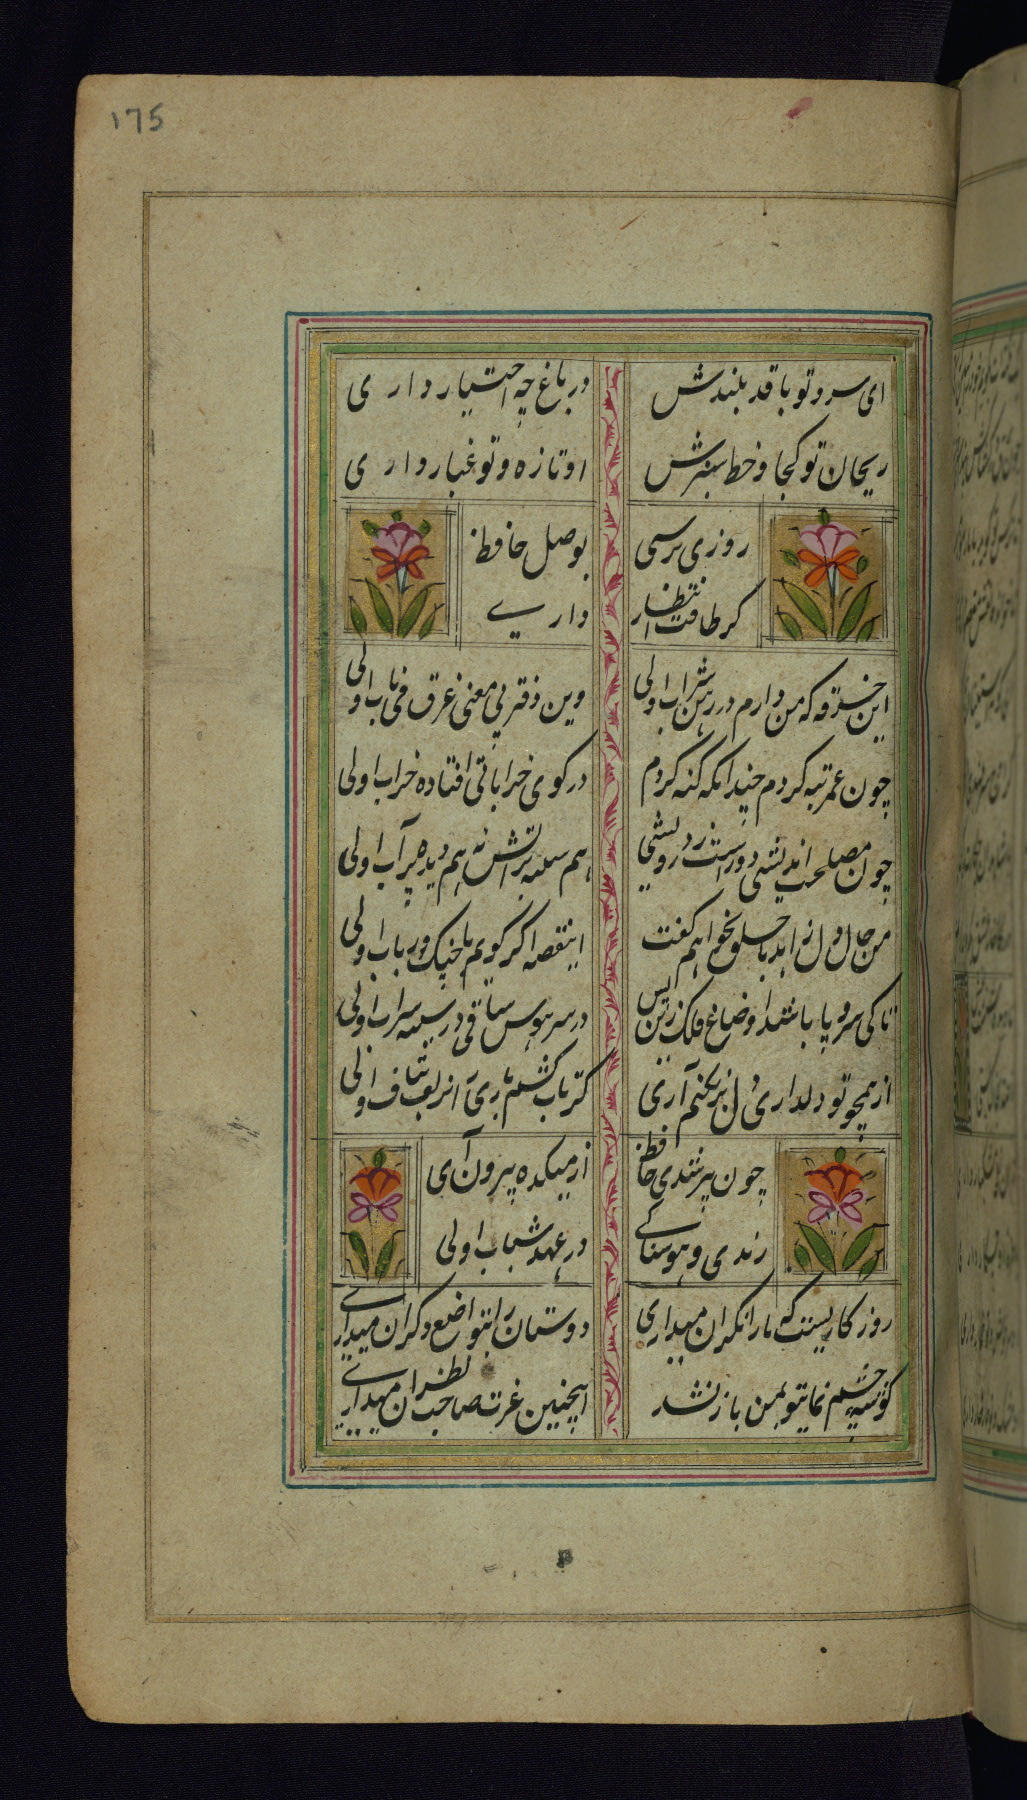 ۱۷۵
ای سرو تو با قد بلندش در باغ چه اختیار داری
ریحان تو کجا و خط سبزش او تازه و تو غبار داری
روزی برسی بوصل حافظ
کر طاقت انتظار داری
این خرقه که من دارم در رهن شراب اولی وین دفتر بی معنی غرق می ناب اولی
چون عمر تبه کردم چندانکه نکه کردم در کوی خراباتی افتاده خراب اولی
چون مصلحت اندیشی دور است ز درویشی هم سینه پر آتش به هم دیده پر آب اولی
من حال دل زاهد با خلق نخواهم کفت اینقصه اکر کویم با چنک و رباب اولی
تا کی سر و پا باشد اوضاع فلک زین پس در سر هوس ساقی در سینه شراب اولی
از همچو تو دلداری دل بر نکنم آری کر تاب کشم باری از زلف بتاب اولی
چون پیر شدی حافظ از میکده بیرون آی
رندی و هوسناکی در عهد شباب اولی
روزکاریست که ما را نکران میداری دوستان را نه باوضاع دکران میداری
کوشه چشم بمن باز نشد اینچنین عزت صاحب نظران میداری